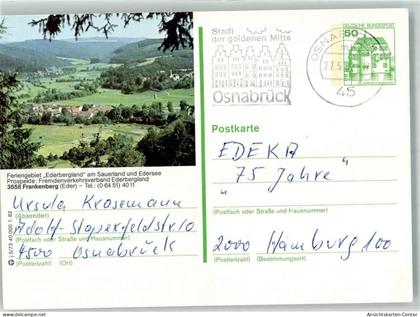 Feriengebiet „Ederbergland" am Sauerland und Edersee
Prospekte: Fremdenverkehrsverband Ederbergland
3558 Frankenberg (Eder) – Tel.: (0 64 51) 40 11
Ursula Krosemann
(Absender)
(Postfach oder Straße und Hausnummer)
4500 Osnabrück
(Postleitzahl) (Ort)
Stadt
der goldenen Mitte
Osnabrück
45
DEUTSCHE BUNDESPOST
50
Postkarte
EDEKA
„ 75 Jahre "
(Postfach oder Straße und Hausnummer)
2000 Hamburg 100
(Postleitzahl) (Bestimmungsort)
www.delcampe.net
Ansichtskarten-Center